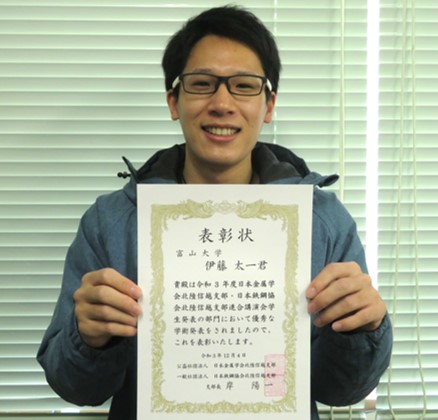 表彰状
富山大学
伊藤 太一君
貴殿は令和3年度日本金属学
会北陸信越支部・日本鉄鋼協
会北陸信越支部連合講演会学
生発表の部門において優秀な
学術発表をされましたので、
これを表彰いたします。
令和3年12月4日
公益社団法人 日本金属学会北陸信越支部
一般社団法人 日本鉄鋼協会北陸信越支部
支部長 岸 陽一